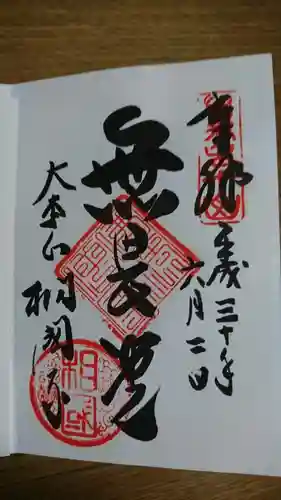 奉拝
平成三十年
六月二日
無畏堂
大本山
相国寺